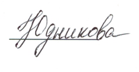 Юдникова